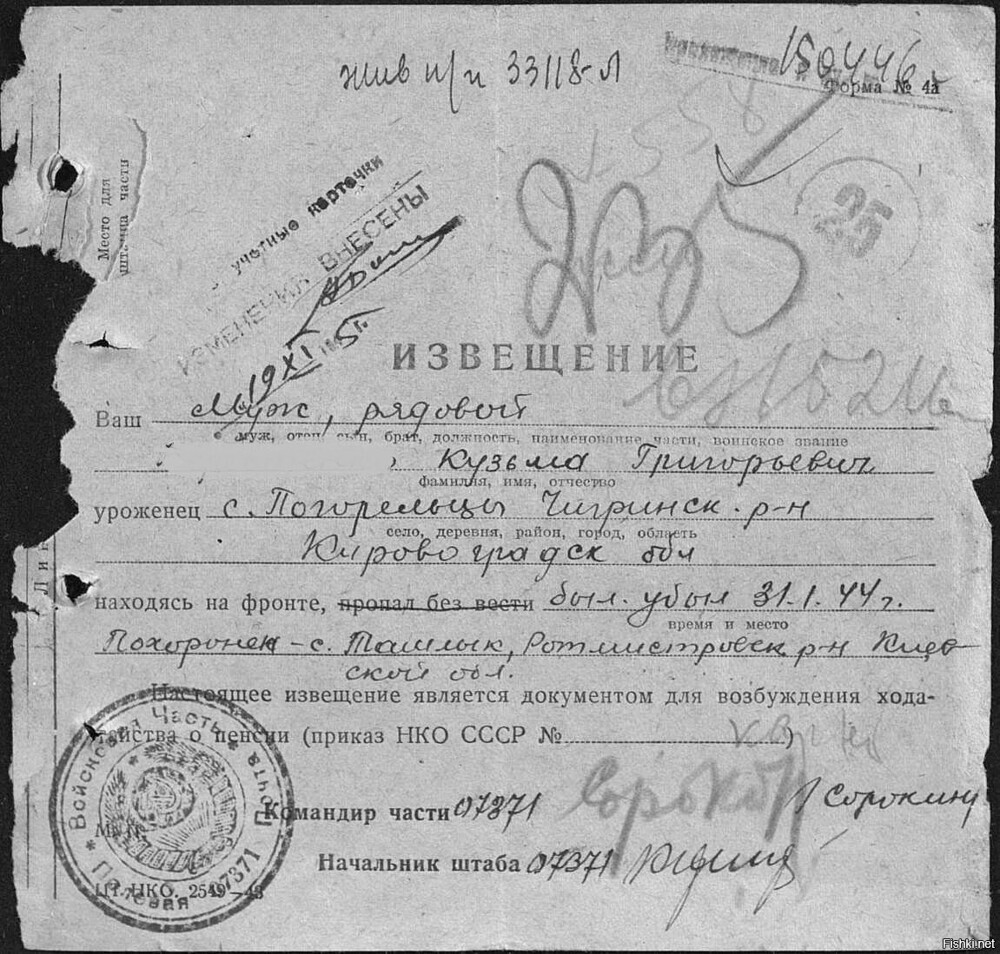 жив п/п 33118-Л
150446
Форма № 4а
Место для
штампа части
учетные карточки
ИЗМЕНЕНИЯ ВНЕСЕНЫ
19 XI
25
ИЗВЕЩЕНИЕ
Ваш муж, рядовой
муж, отец, сын, брат, должность, наименование части, воинское звание
, Кузьма Григорьевич
фамилия, имя, отчество
уроженец с. Погорельцы Чигринск. р-н
село, деревня, район, город, область
Кировоградск обл
находясь на фронте, пропал без вести был. убит 31.1.44г.
время и место
Похоронен - с. Ташлык, Ротмистровск р-н Киев
ской обл.
Настоящее извещение является документом для возбуждения хода-
тайства о пенсии (приказ НКО СССР № )
Командир части 07371 Сорокин
Начальник штаба 07371
Войсковая Часть * Полевая Почта 07371 *
ЦТ. НКО. 2549—43
Fishki.net